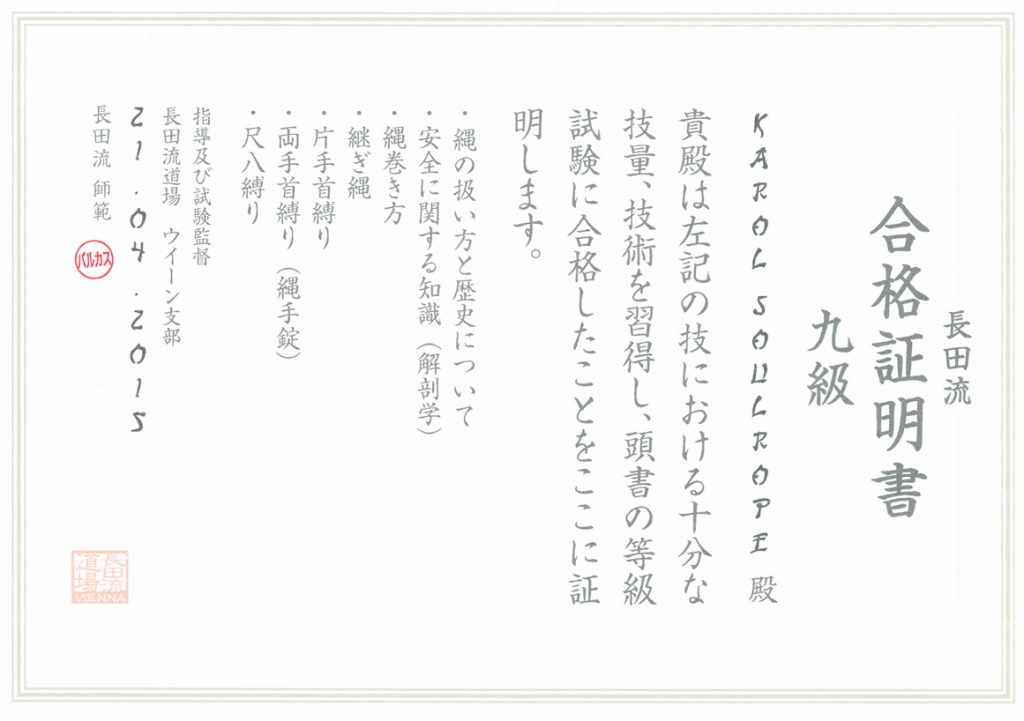 長田流
合格証明書
九級
KAROL SOULROPE 殿
貴殿は左記の技における十分な
技量、技術を習得し、頭書の等級
試験に合格したことをここに証
明します。
・縄の扱い方と歴史について
・安全に関する知識（解剖学）
・縄巻き方
・継ぎ縄
・片手首縛り
・両手首縛り（縄手錠）
・尺八縛り
指導及び試験監督
長田流道場 ウイーン支部
21.04.2015
長田流 師範
バルカス
長田流
道場
VIENNA